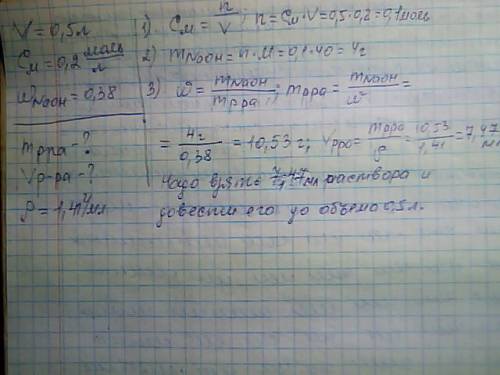 V = 0,5л
Cм = 0,2 моль/л
ωNaOH = 0,38
mр-ра - ?
Vр-ра - ?
ρ = 1,4 г/мл
1) Cм = n/V; n = Cм·V = 0,5·0,2 = 0,1 моль
2) mNaOH = n·M = 0,1·40 = 4г
3) ω = mNaOH/mр-ра; mр-ра = mNaOH/ω =
= 4г/0,38 = 10,53 г; Vр-ра = mр-ра/ρ = 10,53/1,41 = 7,47 мл
Надо взять 7,47 мл раствора и
довести его до объема 0,5 л.